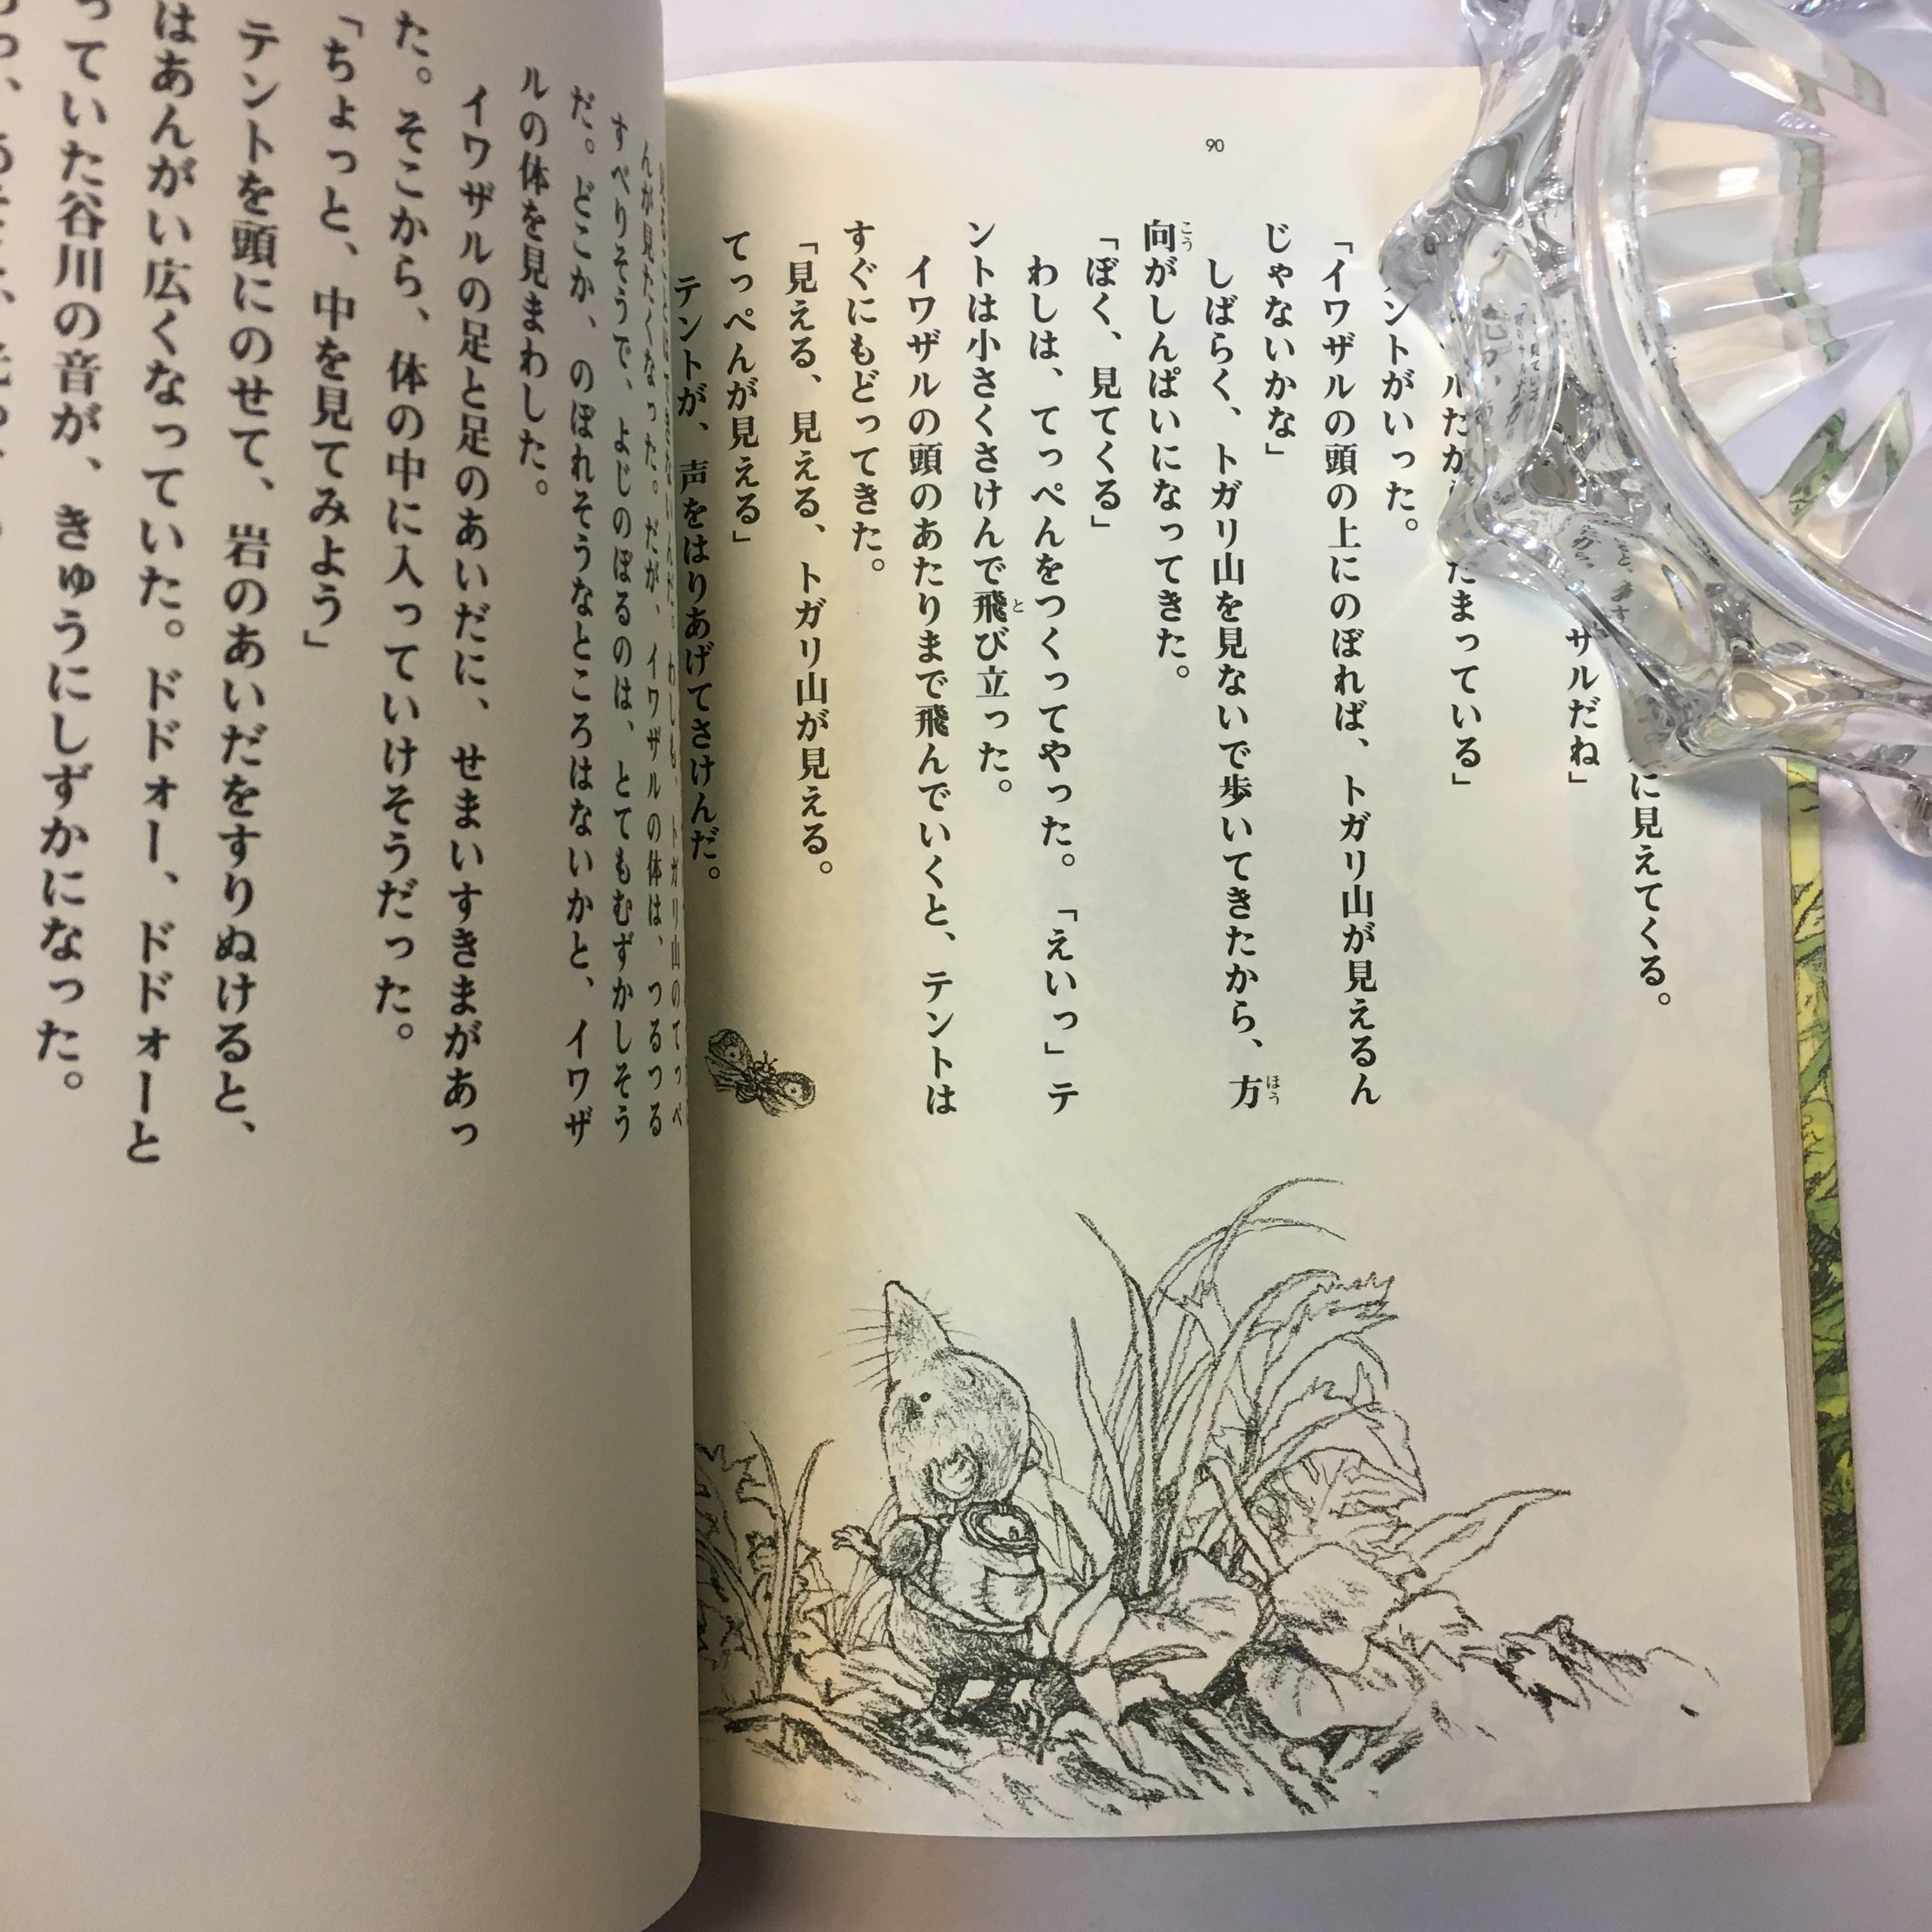 90
に見えてくる。
サルだね」
たまっている」
ントがいった。
「イワザルの頭の上にのぼれば、トガリ山が見えるん
じゃないかな」
しばらく、トガリ山を見ないで歩いてきたから、方
向がしんぱいになってきた。
「ぼく、見てくる」
わしは、てっぺんをつくってやった。「えいっ」テ
ントは小さくさけんで飛び立った。
イワザルの頭のあたりまで飛んでいくと、テントは
すぐにもどってきた。
「見える、見える、トガリ山が見える。
てっぺんが見える」
テントが、声をはりあげてさけんだ。
んが見たくなった。だが、イワザルの体は、つるつる
すべりそうで、よじのぼるのは、とてもむずかしそう
だ。どこか、のぼれそうなところはないかと、イワザ
ルの体を見まわした。
イワザルの足と足のあいだに、せまいすきまがあっ
た。そこから、体の中に入っていけそうだった。
「ちょっと、中を見てみよう」
テントを頭にのせて、岩のあいだをすりぬけると、
はあんがい広くなっていた。ドドォー、ドドォーと
っていた谷川の音が、きゅうにしずかになった。